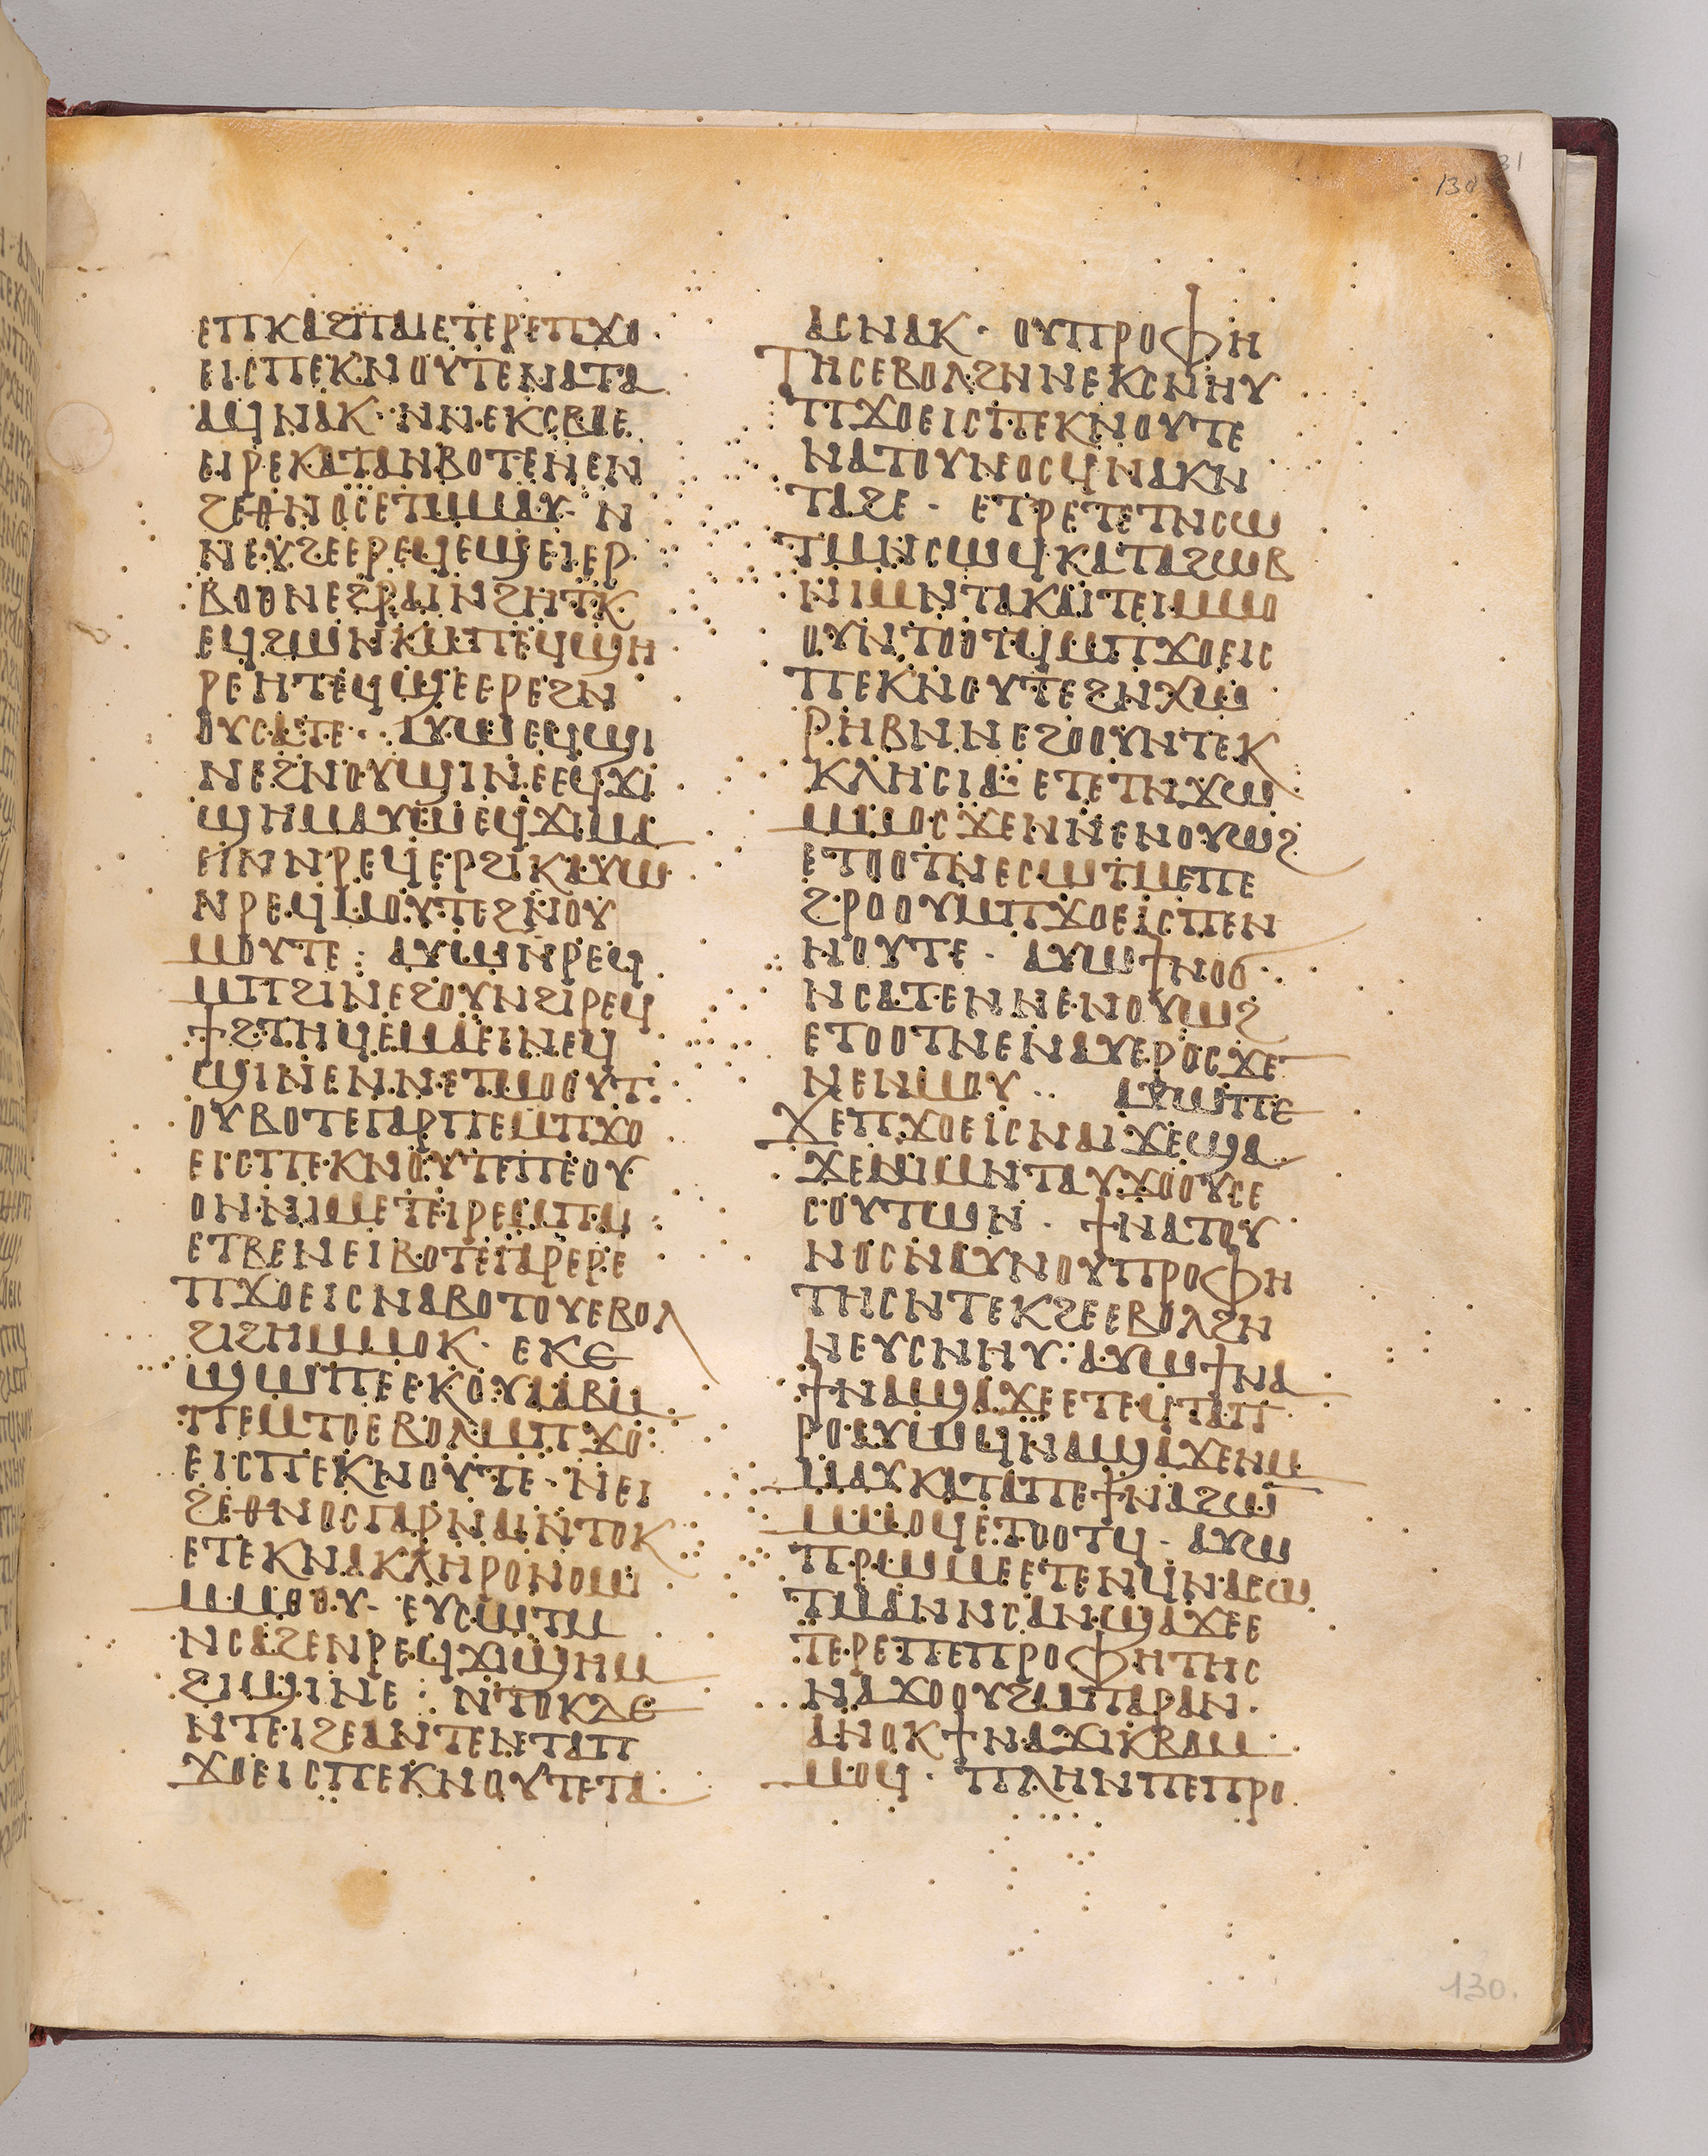 ⲉⲡⲕⲁϩⲡⲁⲓⲉⲧⲉⲣⲉⲡϫⲟ
ⲉⲓⲥⲡⲉⲕⲛⲟⲩⲧⲉⲛⲁⲧⲁ
ⲁϥⲛⲁⲕ· ⲛⲛⲉⲕⲥⲃⲱⲉ
ⲉⲓⲣⲉⲕⲁⲧⲁⲛⲃⲟⲧⲉⲛⲉⲛ
ϩⲉⲑⲛⲟⲥⲉⲧⲙⲙⲁⲩ· ⲛ
ⲛⲉⲩϩⲉⲉⲣⲉϥⲉϣⲉⲓⲉⲣ
ⲃⲟⲟⲛⲉϩⲣⲁⲓⲛϩⲏⲧⲕ
ⲉϥϩⲱⲛⲕⲙⲡⲉϥϣⲏ
ⲣⲉⲏⲧⲉϥϣⲉⲉⲣⲉϩⲛ
ⲟⲩⲥⲁⲧⲉ·· ⲁⲩⲱⲉϥϣⲓ
ⲛⲉϩⲛⲟⲩϣⲓⲛⲉⲉϥϫⲓ
ϣⲏⲙⲁⲩⲱⲉϥϫⲓⲙⲁ
ⲉⲓⲛⲛⲣⲉϥⲉⲣϩⲓⲕⲁⲩⲱ
ⲛⲣⲉϥⲙⲟⲩⲧⲉϩⲛⲟⲩ
ⲙⲟⲩⲧⲉ: ⲁⲩⲱⲛⲣⲉϥ
ⲙⲡϩⲓⲛⲉϩⲟⲩⲛϩⲓⲣⲉϥ
ϯϩⲧⲏϥⲉⲙⲁⲉⲓⲛⲉϥ
ϣⲓⲛⲉⲛⲛⲉⲧⲙⲟⲟⲩⲧ:
ⲟⲩⲃⲟⲧⲉⲅⲁⲣⲡⲉⲙⲡϫⲟ
ⲉⲓⲥⲡⲉⲕⲛⲟⲩⲧⲉⲡⲉⲟⲩ
ⲟⲛⲛⲓⲙⲉⲧⲉⲓⲣⲉⲙⲡⲁⲓ:
ⲉⲧⲃⲉⲛⲉⲓⲃⲟⲧⲉⲅⲁⲣⲉⲣⲉ
ⲡϫⲟⲉⲓⲥⲛⲁⲃⲟⲧⲟⲩⲉⲃⲟⲗ
ϩⲓϩⲏⲙⲙⲟⲕ· ⲉⲕⲉ
ϣⲱⲡⲉⲉⲕⲟⲩⲁⲁⲃⲙ
ⲡⲉⲙⲧⲟⲉⲃⲟⲗⲙⲡϫⲟ
ⲉⲓⲥⲡⲉⲕⲛⲟⲩⲧⲉ· ⲛⲉⲓ
ϩⲉⲑⲛⲟⲥⲅⲁⲣⲛⲁⲓⲛⲧⲟⲕ
ⲉⲧⲉⲕⲛⲁⲕⲗⲏⲣⲟⲛⲟⲙⲓ
ⲙⲙⲟⲟⲩ· ⲉⲩⲥⲱⲧⲙ
ⲛⲥⲁϩⲉⲛⲣⲉϥϫⲓϣⲏⲙ
ϩⲓϣⲓⲛⲉ: ⲛⲧⲟⲕⲇⲉ
ⲛⲧⲉⲓϩⲉⲁⲛⲧⲉⲛⲧⲁⲡ
ϫⲟⲉⲓⲥⲡⲉⲕⲛⲟⲩⲧⲉⲧⲁ
ⲁⲥⲛⲁⲕ· ⲟⲩⲡⲣⲟⲫⲏ
ⲧⲏⲥⲉⲃⲟⲗϩⲛⲛⲉⲕⲥⲛⲏⲩ
ⲡϫⲟⲉⲓⲥⲡⲉⲕⲛⲟⲩⲧⲉ
ⲛⲁⲧⲟⲩⲛⲟⲥϥⲛⲁⲕⲛ
ⲧⲁϩⲉ· ⲉⲧⲣⲉⲧⲉⲧⲛⲥⲱ
ⲧⲙⲛⲥⲱϥⲕⲁⲧⲁϩⲱⲃ
ⲛⲓⲙⲛⲧⲁⲕⲁⲓⲧⲉⲓⲙⲙⲟ
ⲟⲩⲛⲧⲟⲟⲧϥⲙⲡϫⲟⲉⲓⲥ
ⲡⲉⲕⲛⲟⲩⲧⲉϩⲛⲭⲱ
ⲣⲏⲃⲛⲛⲉϩⲟⲟⲩⲛⲧⲉⲕ
ⲕⲗⲏⲥⲓⲁ· ⲉⲧⲉⲧⲛϫⲱ
ⲙⲙⲟⲥϫⲉⲛⲛⲉⲛⲟⲩⲱϩ
ⲉⲧⲟⲟⲧⲛⲉⲥⲱⲧⲙⲉⲡⲉ
ϩⲣⲟⲟⲩⲙⲡϫⲟⲉⲓⲥⲡⲉⲛ
ⲛⲟⲩⲧⲉ· ⲁⲩⲱϯⲛⲟϭ
ⲛⲥⲁⲧⲉⲛⲛⲉⲛⲟⲩⲱϩ
ⲉⲧⲟⲟⲧⲛⲉⲛⲁⲩⲉⲣⲟⲥϫⲉ
ⲛⲉⲛⲙⲟⲩ·· ⲁⲩⲱⲡⲉ
ϫⲉⲡϫⲟⲉⲓⲥⲛⲁⲓϫⲉϣⲁ
ϫⲉⲛⲓⲙⲛⲧⲁⲩϫⲟⲟⲩⲥⲉ
ⲥⲟⲩⲧⲱⲛ· ϯⲛⲁⲧⲟⲩ
ⲛⲟⲥⲛⲁⲩⲛⲟⲩⲡⲣⲟⲫⲏ
ⲧⲏⲥⲛⲧⲉⲕϩⲉⲉⲃⲟⲗϩⲛ
ⲛⲉⲩⲥⲛⲏⲩ: ⲁⲩⲱϯⲛⲁ
ϯⲛⲁϣⲁϫⲉⲉⲧⲉϥⲧⲁⲡ
ⲣⲟⲁⲩⲱϥⲛⲁϣⲁϫⲉⲛⲙ
ⲙⲁⲩⲕⲁⲧⲁⲡⲉϯⲛⲁϩⲱⲛ
ⲙⲙⲟϥⲉⲧⲟⲟⲧϥ· ⲁⲩⲱ
ⲡⲣⲱⲙⲉⲉⲧⲉⲛϥⲛⲁⲥⲱ
ⲧⲙⲁⲛⲛⲥⲁⲛϣⲁϫⲉⲉ
ⲧⲉⲣⲉⲡⲉⲡⲣⲟⲫⲏⲧⲏⲥ
ⲛⲁϫⲟⲟⲩϩⲙⲡⲁⲣⲁⲛ·
ⲁⲛⲟⲕϯⲛⲁϫⲓⲕⲃⲁⲙ
ⲙⲟϥ· ⲡⲗⲏⲛⲡⲉⲡⲣⲟ
130.